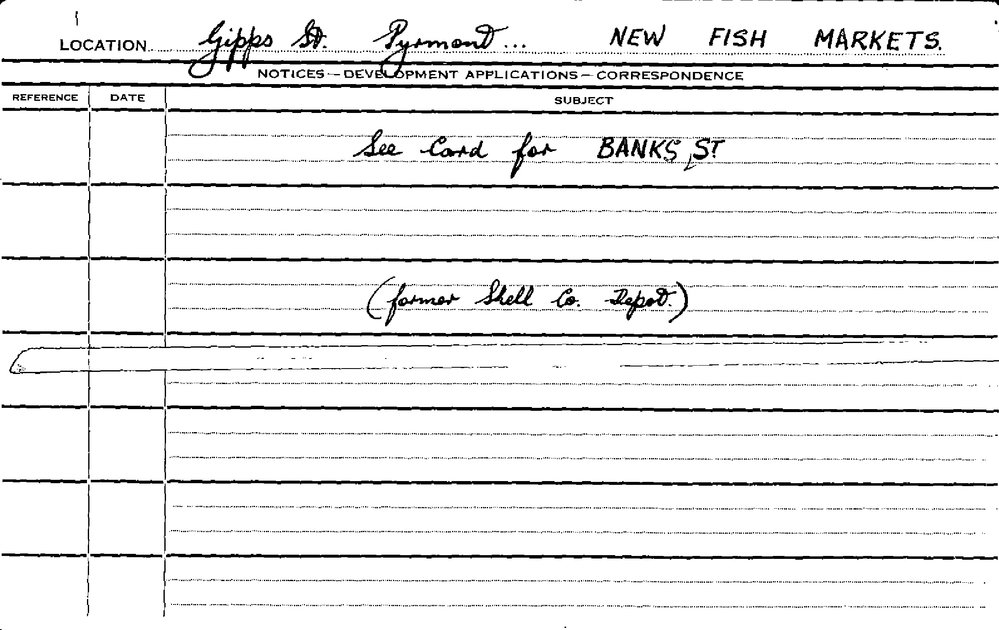 LOCATION Gipps St. Pyrmont... NEW FISH MARKETS.
NOTICES—DEVELOPMENT APPLICATIONS—CORRESPONDENCE
REFERENCE DATE SUBJECT
See Card for BANKS ST
(former Shell Co. Depot.)